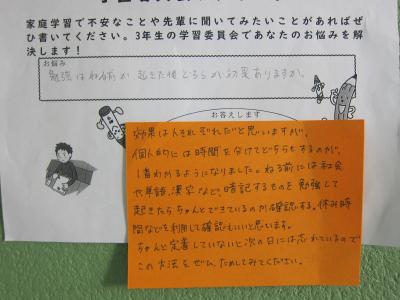 家庭学習で不安なことや先輩に聞いてみたいことがあればぜ
ひ書いてください。3年生の学習委員会であなたのお悩みを解
決します!
お悩み
勉強はねる前か起きた後どちらが効果ありますか。
お答えします
効果は人それぞれだと思いますが、
個人的には時間を分けてどちらもするのが、
1番わかるようになりました。ねる前には社会
や単語、漢字など、暗記するものを勉強して
起きたらちゃんとできているのか確認する。休み時
間などを利用して確認もいいと思います。
ちゃんと定着していないと次の日には忘れているので
この方法をぜひ、ためしてみてください。